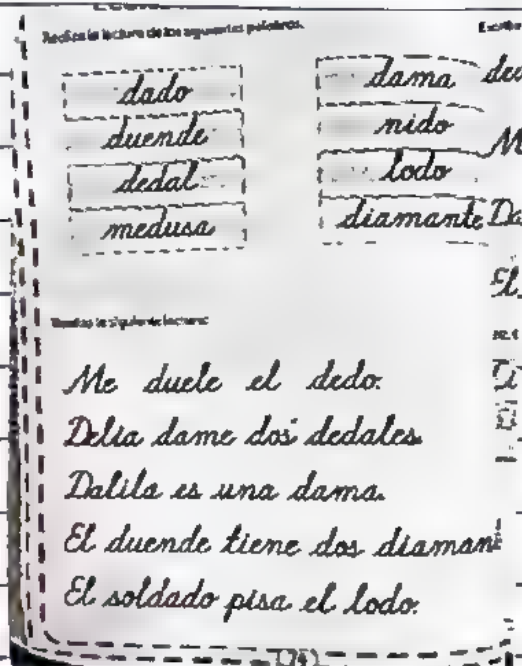 Realiza la lectura de las siguientes palabras.
dado
duende
dedal
medusa
dama
nido
lodo
diamante
Realiza la siguiente lectura:
Me duele el dedo.
Delia dame dos dedales.
Dalila es una dama.
El duende tiene dos diamant
El soldado pisa el lodo.
74
Escribe
ded
M
Da
El